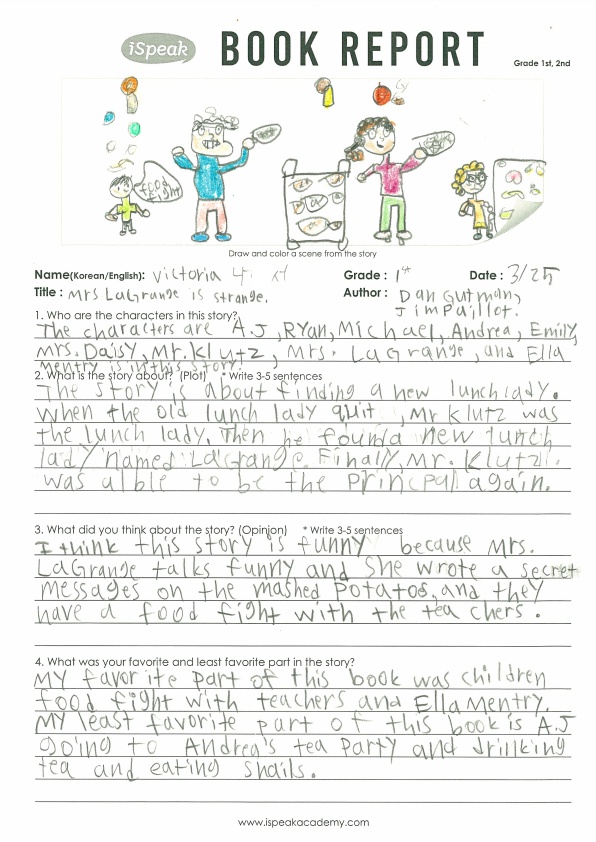 iSpeak BOOK REPORT
Grade 1st, 2nd
FOOD
fight
Draw and color a scene from the story
Name(Korean/English): Victoria
Grade : 1st
Date : 3/25
Title : Mrs LaGrange is strange.
Author : Dan Gutman,
Jim Paillot.
1. Who are the characters in this story?
The characters are A.J, Ryan, Michael, Andrea, Emily,
mrs. Daisy, Mr. Klutz, Mrs. LaGrange, and Ella
Mentry is in this story.
2. What is the story about? (Plot) * Write 3-5 sentences
The story is about finding a new lunch lady.
When the old lunch lady quit, Mr Klutz was
the lunch lady. Then he found new lunch
lady named LaGrange. Finally, Mr. Klutz
was able to be the principal again.
3. What did you think about the story? (Opinion) * Write 3-5 sentences
I think this story is funny because Mrs.
LaGrange talks funny and she wrote a secret
messages on the mashed potatos, and they
have a food fight with the teachers.
4. What was your favorite and least favorite part in the story?
My favorite part of this book was children
food fight with teachers and Ella Mentry.
My least favorite part of this book is A.J
going to Andrea's tea party and drinking
tea and eating snails.
www.ispeakacademy.com